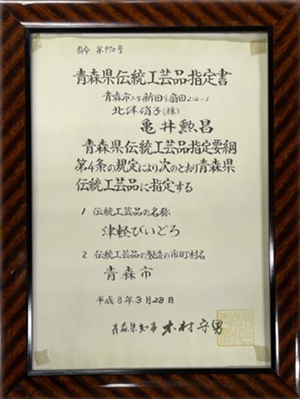 指令 第970号
青森県伝統工芸品指定書
青森市大字新田字扇田
北洋硝子(株)
亀井勲昌
青森県伝統工芸品指定要綱
第4条の規定により次のとおり青森県
伝統工芸品に指定する
1 伝統工芸品の名称
津軽びいどろ
2 伝統工芸品の製造の市町村名
青森市
平成8年3月28日
青森県知事 木村守男